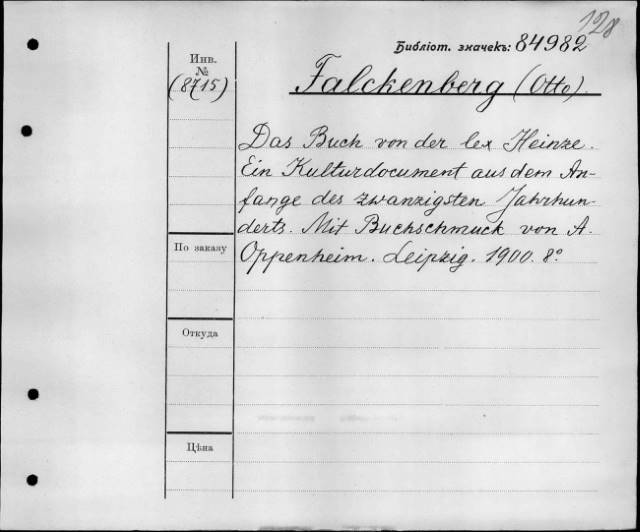 128
Библіот. значекъ: 84982
Инв.
№
(8715)
Falckenberg (Otto).
Das Buch von der lex Heinze.
Ein Kulturdocument aus dem An-
fange des zwanzigsten Jahrhun-
derts. Mit Buchschmuck von A.
Oppenheim. Leipzig. 1900. 8º
По заказу
Откуда
Цѣна